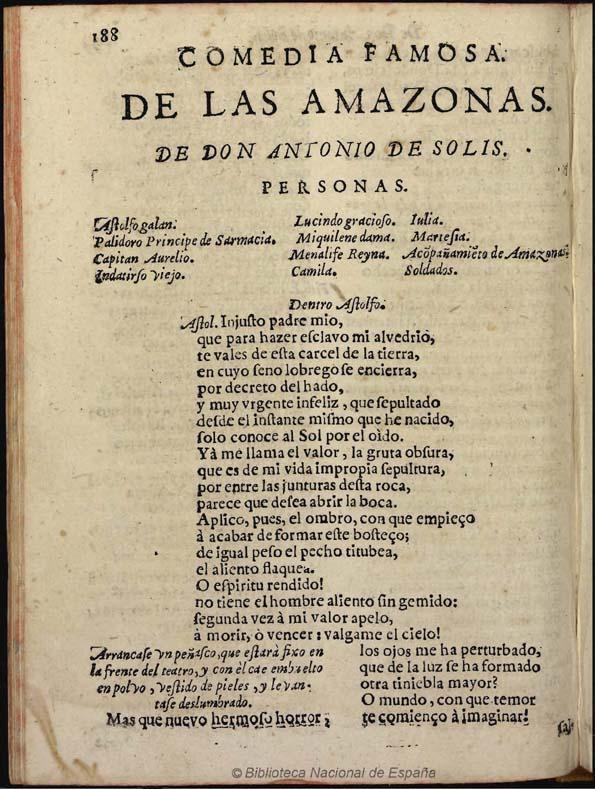 188
COMEDIA FAMOSA.
DE LAS AMAZONAS.
DE DON ANTONIO DE SOLIS.
PERSONAS.
Astolfo galan.
Palidoro Principe de Sarmacia.
Capitan Aurelio.
Indatirso viejo.
Lucindo gracioso.
Miquilene dama.
Menalife Reyna.
Camila.
Iulia.
Martesia.
Acõpañamiẽto de Amazonas
Soldados.
Dentro Astolfo.
Astol. Injusto padre mio,
que para hazer esclavo mi alvedriò,
te vales de esta carcel de la tierra,
en cuyo seno lobrego se encierra,
por decreto del hado,
y muy vrgente infeliz, que sepultado
desde el instante mismo que he nacido,
solo conoce al Sol por el oìdo.
Yà me llama el valor, la gruta obscura,
que es de mi vida impropia sepultura,
por entre las junturas desta roca,
parece que desea abrir la boca.
Aplico, pues, el ombro, con que empieço
à acabar de formar este bosteço;
de igual peso el pecho titubea,
el aliento flaquea.
O espiritu rendido!
no tiene el hombre aliento sin gemido:
segunda vez à mi valor apelo,
à morir, ò vencer: valgame el cielo!
Arrancase vn peñasco, que estarà fixo en
la frente del teatro, y con èl cae embuelto
en polvo, vestido de pieles, y levan-
tase deslumbrado.
Mas que nuevo hermoso horror;
los ojos me ha perturbado,
que de la luz se ha formado
otra tiniebla mayor?
O mundo, con que temor
te comienço à imaginar!
sal-
© Biblioteca Nacional de España